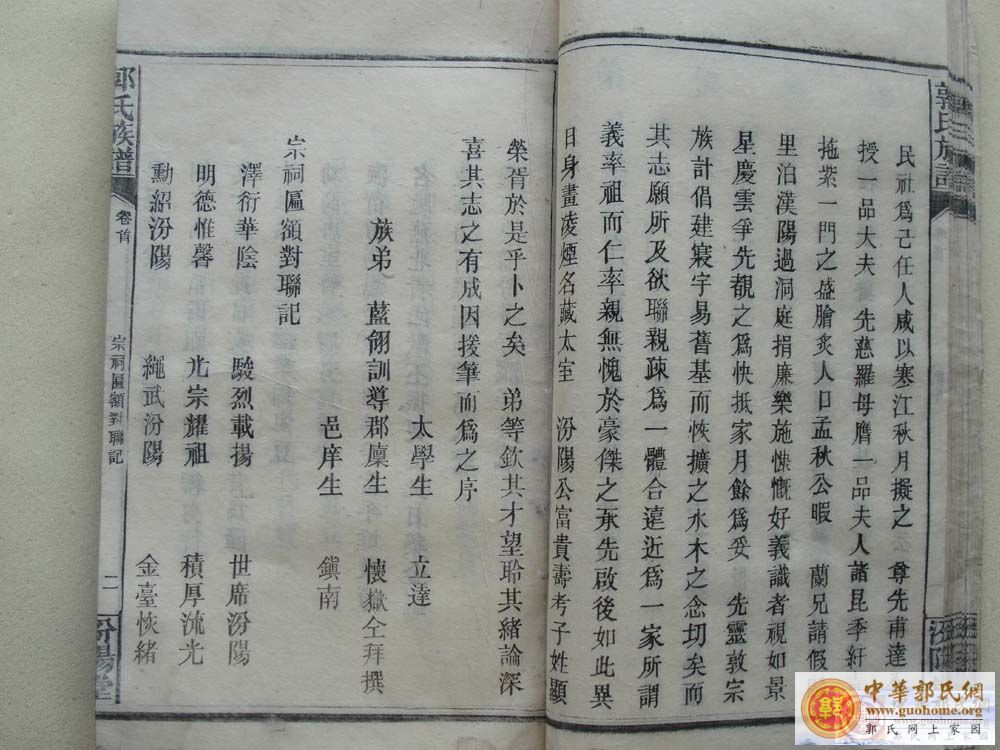 郭氏族譜
民社爲己任人咸以寒江秋月擬之公 尊先甫達
授一品大夫 先慈羅母膺一品夫人諸昆季紆
拖紫一門之盛膾炙人口孟秋公暇 蘭兄請假
里泊漢陽過洞庭捐廉樂施慷慨好義識者視如景
星慶雲爭先覩之爲快抵家月餘爲妥 先靈敦宗
族計倡建寢宇易舊基而恢擴之水木之念切矣而
其志願所及欲聯親疎爲一體合遠近爲一家所謂
義率祖而仁率親無愧於豪傑之承先啟後如此異
日身畫凌煙名藏太室 汾陽公富貴壽考子姓顯
榮胥於是乎卜之矣 弟等欽其才望聆其緒論深
喜其志之有成因援筆而爲之序
太學生 立達
族弟 藍翎訓導郡廩生 懷嶽仝拜撰
邑庠生 鎭南
宗祠匾額對聯記
澤衍華陰 駿烈載揚 世席汾陽
明德惟馨 光宗耀祖 積厚流光
勳紹汾陽 繩武汾陽 金臺恢緒
郭氏族譜 卷首 宗祠匾額對聯記 二 汾陽堂
中華郭氏網
www.guohome.org
郭氏網上家園